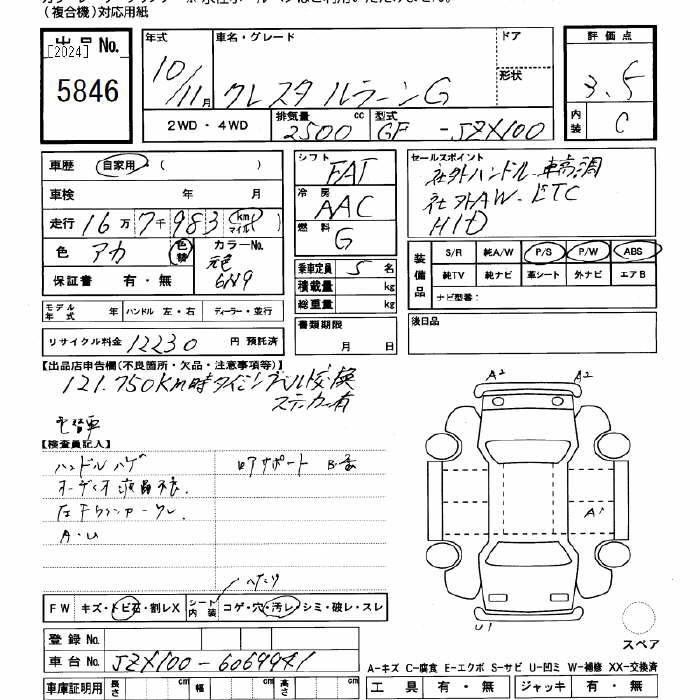 (複合機)対応用紙
出品No. [2024] 5846
年式 10/11月
車名・グレード クレスタ ルラーンG
ドア
形状
評価点 3.5
内装 C
2WD・4WD
排気量 2500 cc
型式 GF-JZX100
車歴 自家用・(
車検 年 月
走行 16万7千983 km マイル
色 アカ 色替 カラーNo. 元色 6N9
保証書 有・無
シフト FAT
冷房 AAC
燃料 G
乗車定員 5名
積載量 kg
総重量 kg
書類期限 月 日
セールスポイント
社外ハンドル 車高調
社外AW ETC
HID
装備品 S/R 純A/W P/S P/W ABS
純TV 純ナビ 革シート 外ナビ エアB
ナビ型番:
後日品
モデル年式 年 ハンドル 左・右 ディーラー・並行
リサイクル料金 12230 円 預託済
【出品店申告欄(不良箇所・欠品・注意事項等)】
121.750Km時タイミングベルト交換
ステッカー有
【検査員記入】
ハンドルハゲ
リアサポート
オーディオ液晶不良
A・U
A2 A2
A1
U1
FW キズ・トビ石・割レX シート内装 コゲ・穴・汚レ・シミ・破レ・スレ
登録No.
車台No. JZX100-6069941
スペア
A-キズ C-腐食 E-エクボ S-サビ U-凹ミ W-補修 XX-交換済
車庫証明用 長さ cm 幅 cm 高さ cm
工具 有・無 ジャッキ 有・無